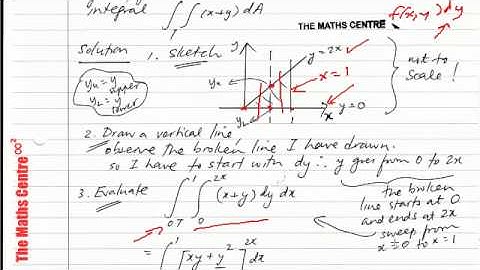 Integral ∫∫ (x+y) dA
f(x,y) dy
THE MATHS CENTRE
Solution 1. Sketch
y y=2x
yu x=1
yu = y upper
yL = y lower
yL 1 x y=0
not to scale!
2. Draw a vertical line,
observe the broken line I have drawn.
so I have to start with dy ∴ y goes from 0 to 2x
3. Evaluate ∫₀¹ ∫₀²ˣ (x+y) dy dx
the broken
line starts at 0
and ends at 2x
sweep from
x=0 to x=1
= ∫¹ [xy + y²]²ˣ dx
The Maths Centre ∞²